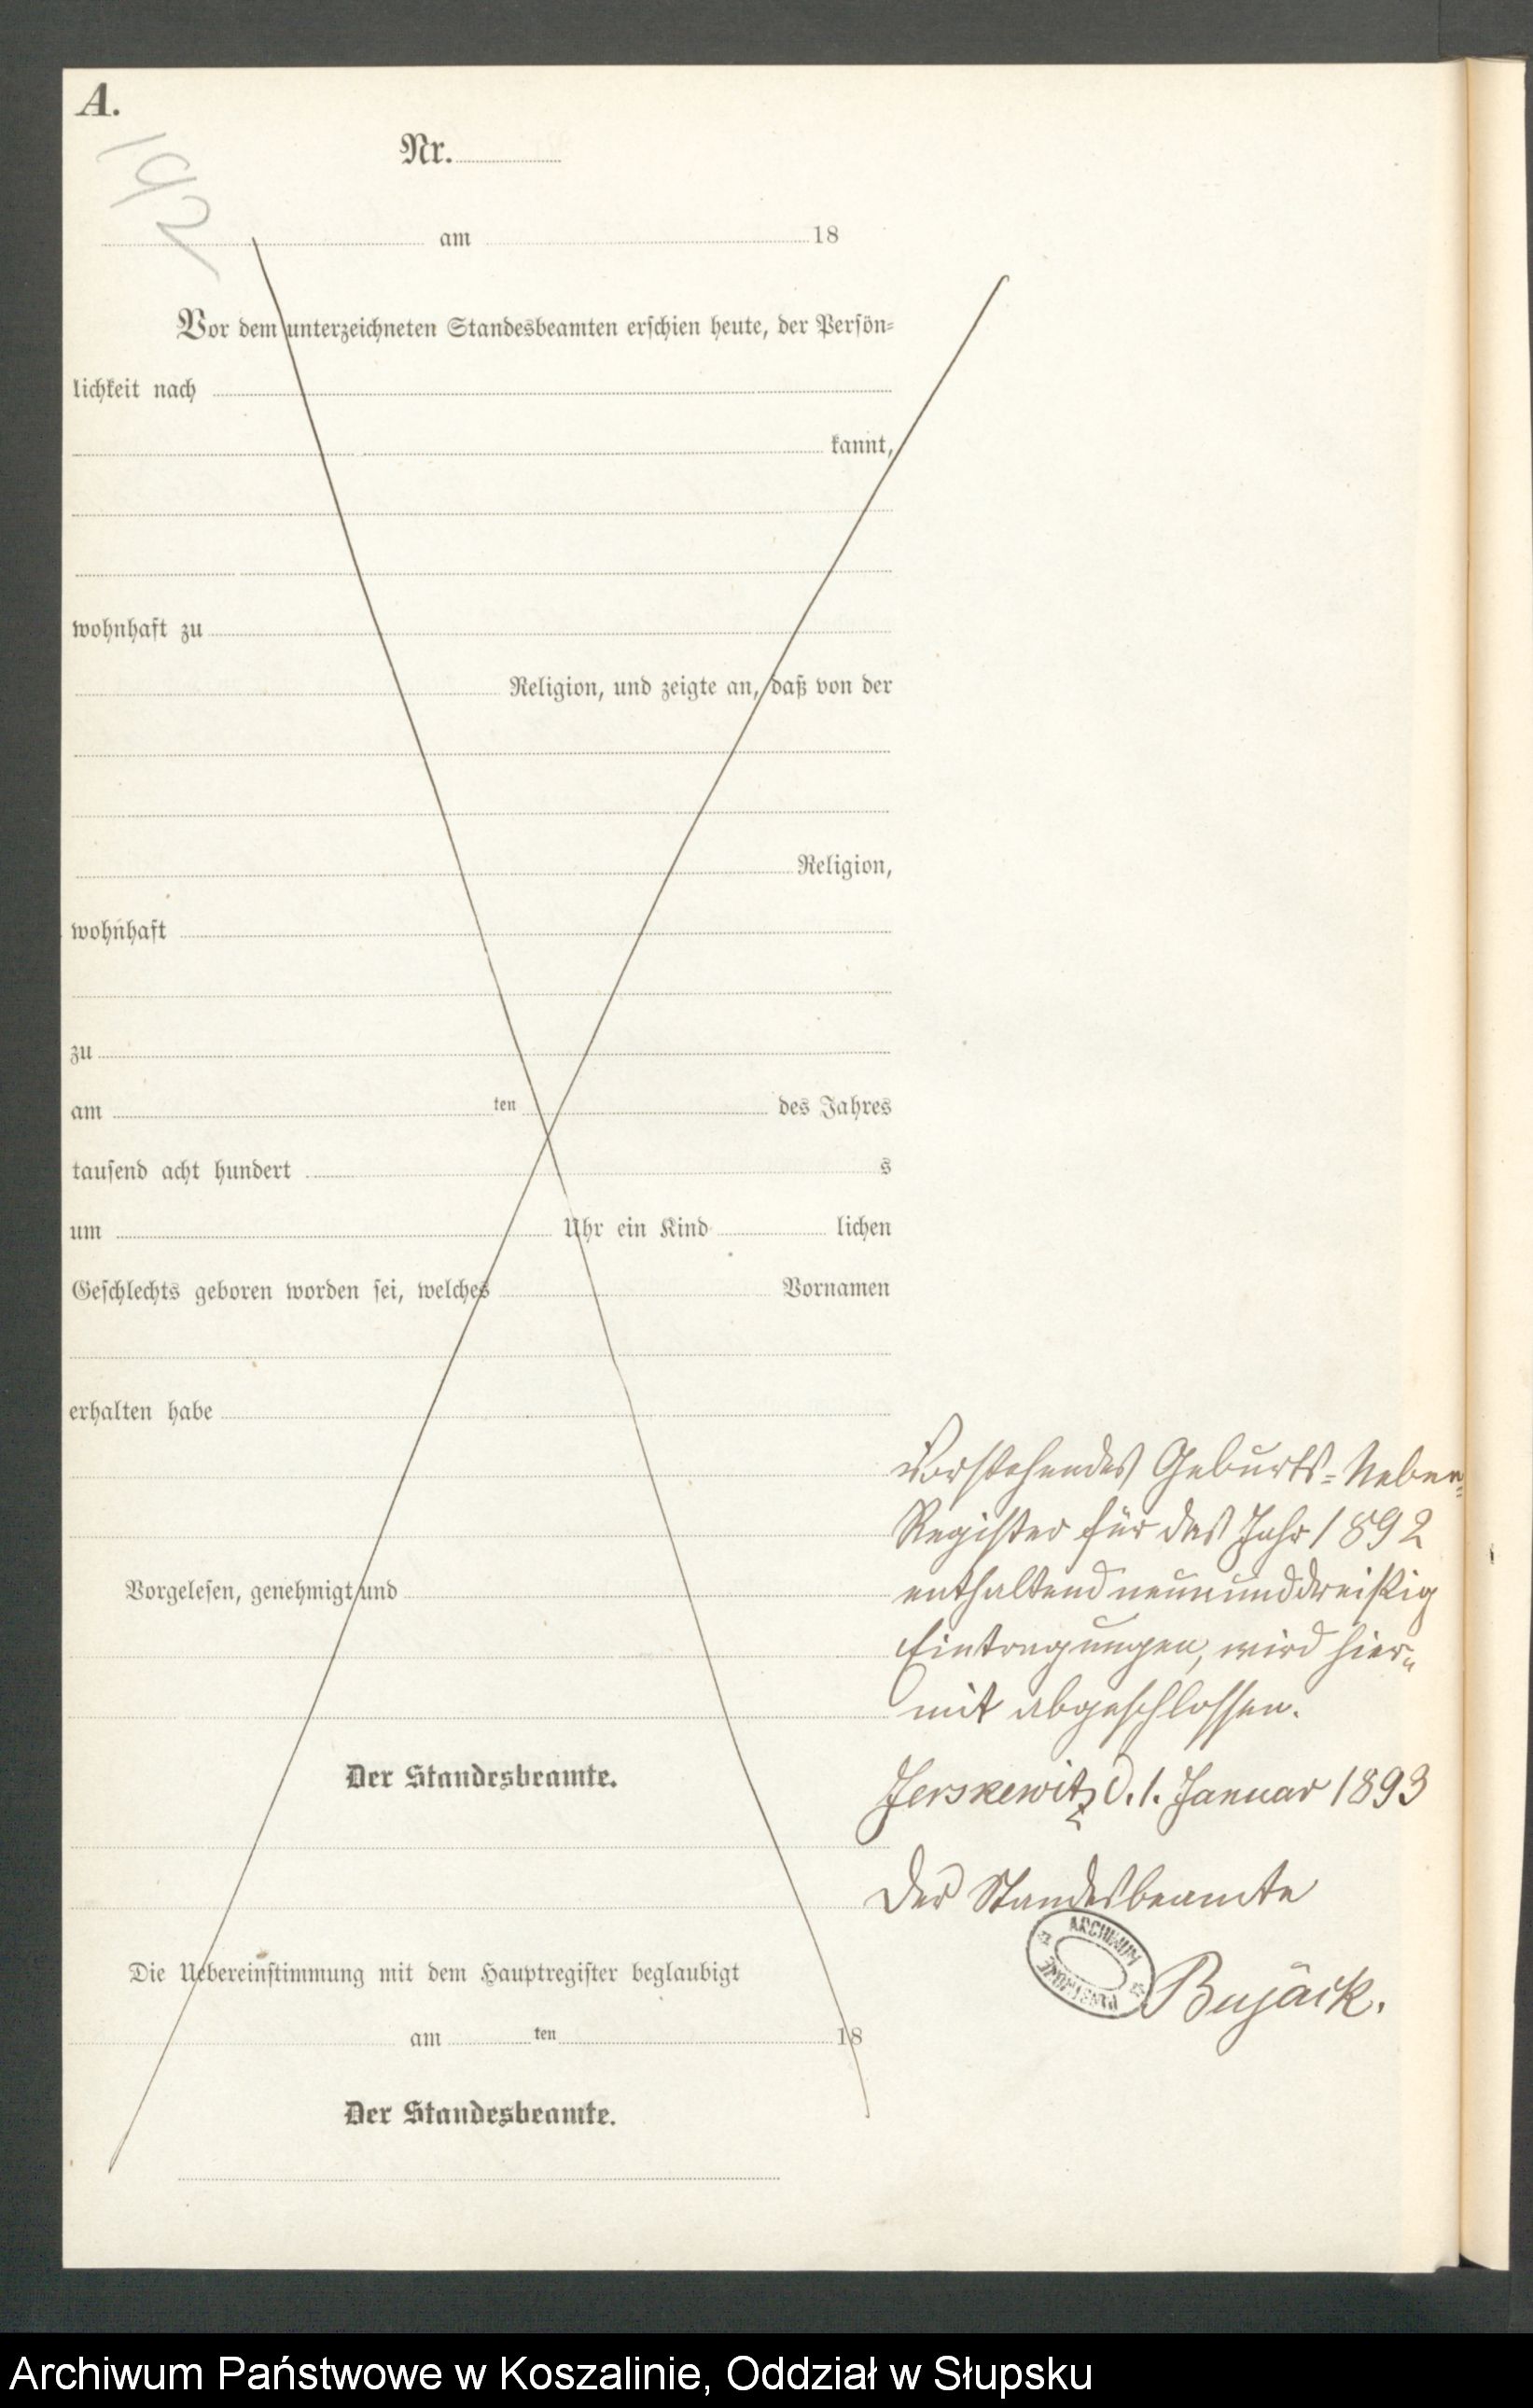 A.
192
Nr.
am 18
Vor dem unterzeichneten Standesbeamten erschien heute, der Persön=
lichkeit nach
kannt,
wohnhaft zu
Religion, und zeigte an, daß von der
Religion,
wohnhaft
zu
am ten des Jahres
tausend acht hundert s
um Uhr ein Kind lichen
Geschlechts geboren worden sei, welches Vornamen
erhalten habe
Vorgelesen, genehmigt und
Der Standesbeamte.
Die Uebereinstimmung mit dem Hauptregister beglaubigt
am ten 18
Der Standesbeamte.
Vorstehendes Geburts=Neben=
Register für das Jahr 1892
enthaltend neununddreißig
Eintragungen, wird hier„
mit abgeschlossen.
Jerskewitz d. 1. Januar 1893
Der Standesbeamte
ARCHIWUM
Bujäck.
Archiwum Państwowe w Koszalinie, Oddział w Słupsku